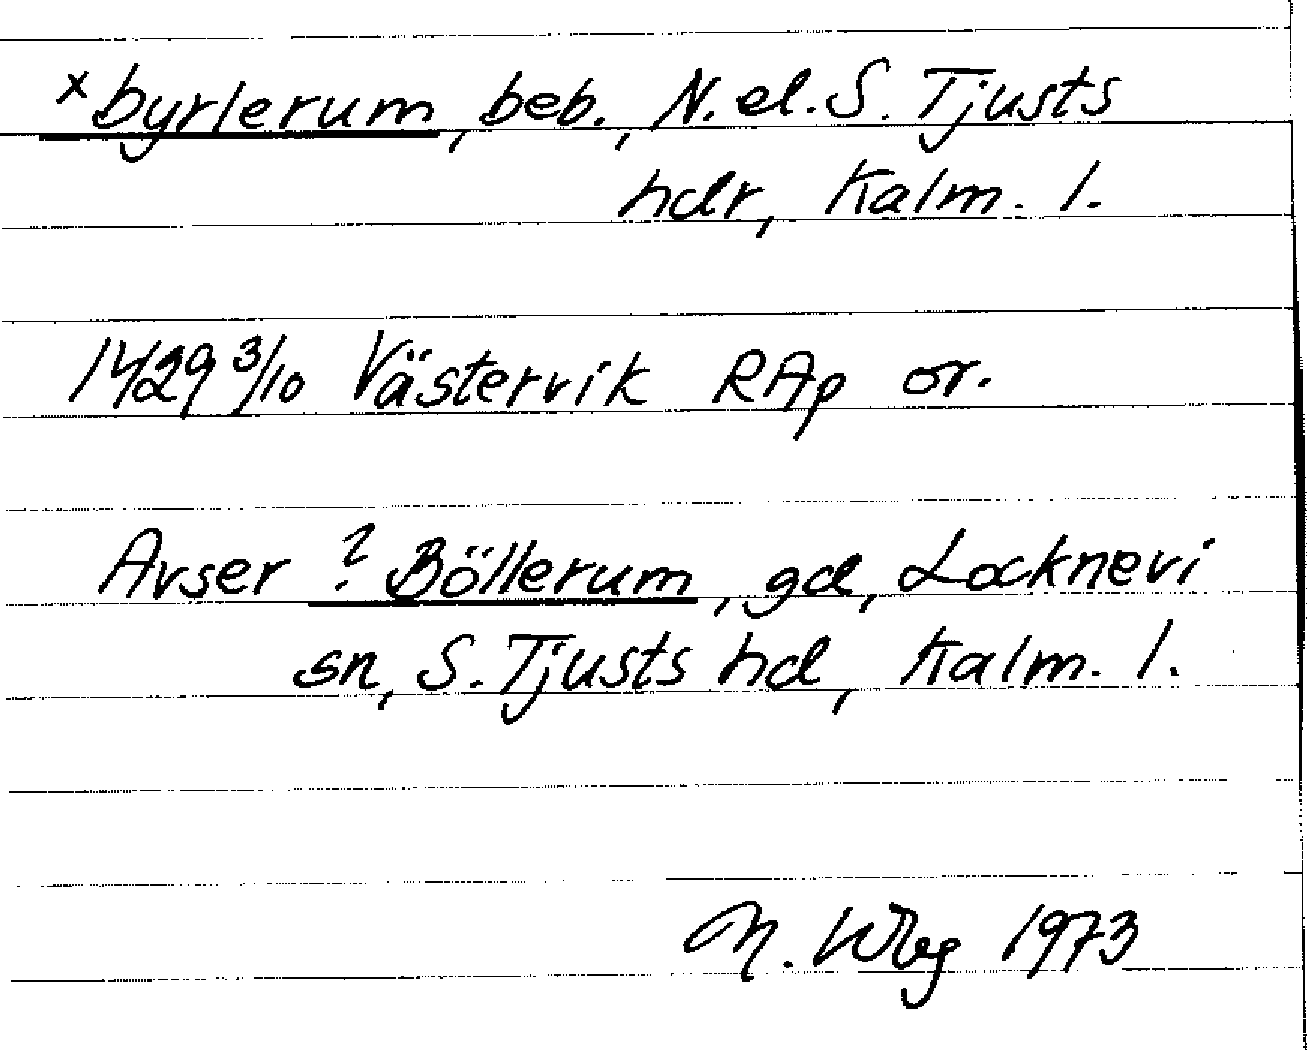 x byrlerum, beb., N. el. S. Tjusts
hdr, Kalm. l.
1429 3/10 Västervik RAp or.
Avser ? Böllerum, gd, Locknevi
sn, S. Tjusts hd, Kalm. l.
M. Wbg 1973